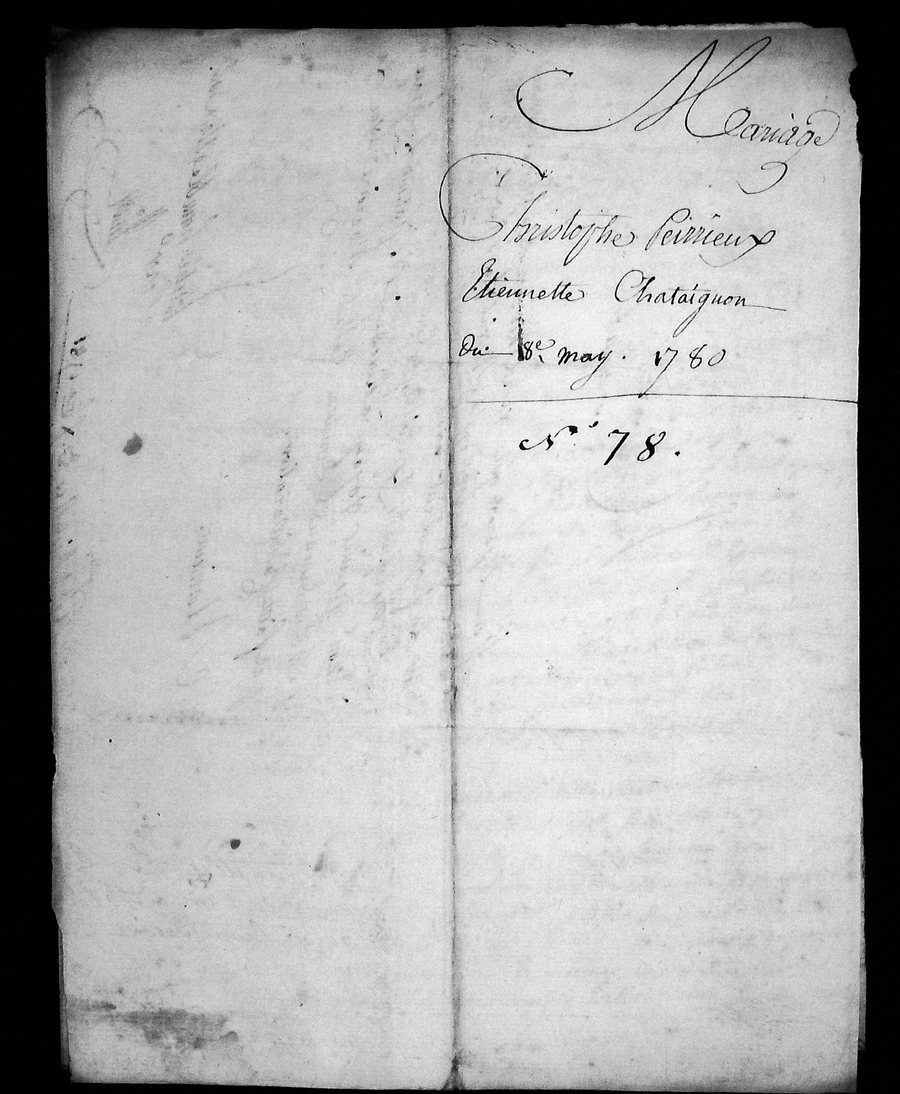 Mariage
Christophe Peirrieux
Etiennette Chataignon
Du 8e. may. 1780
No. 78.